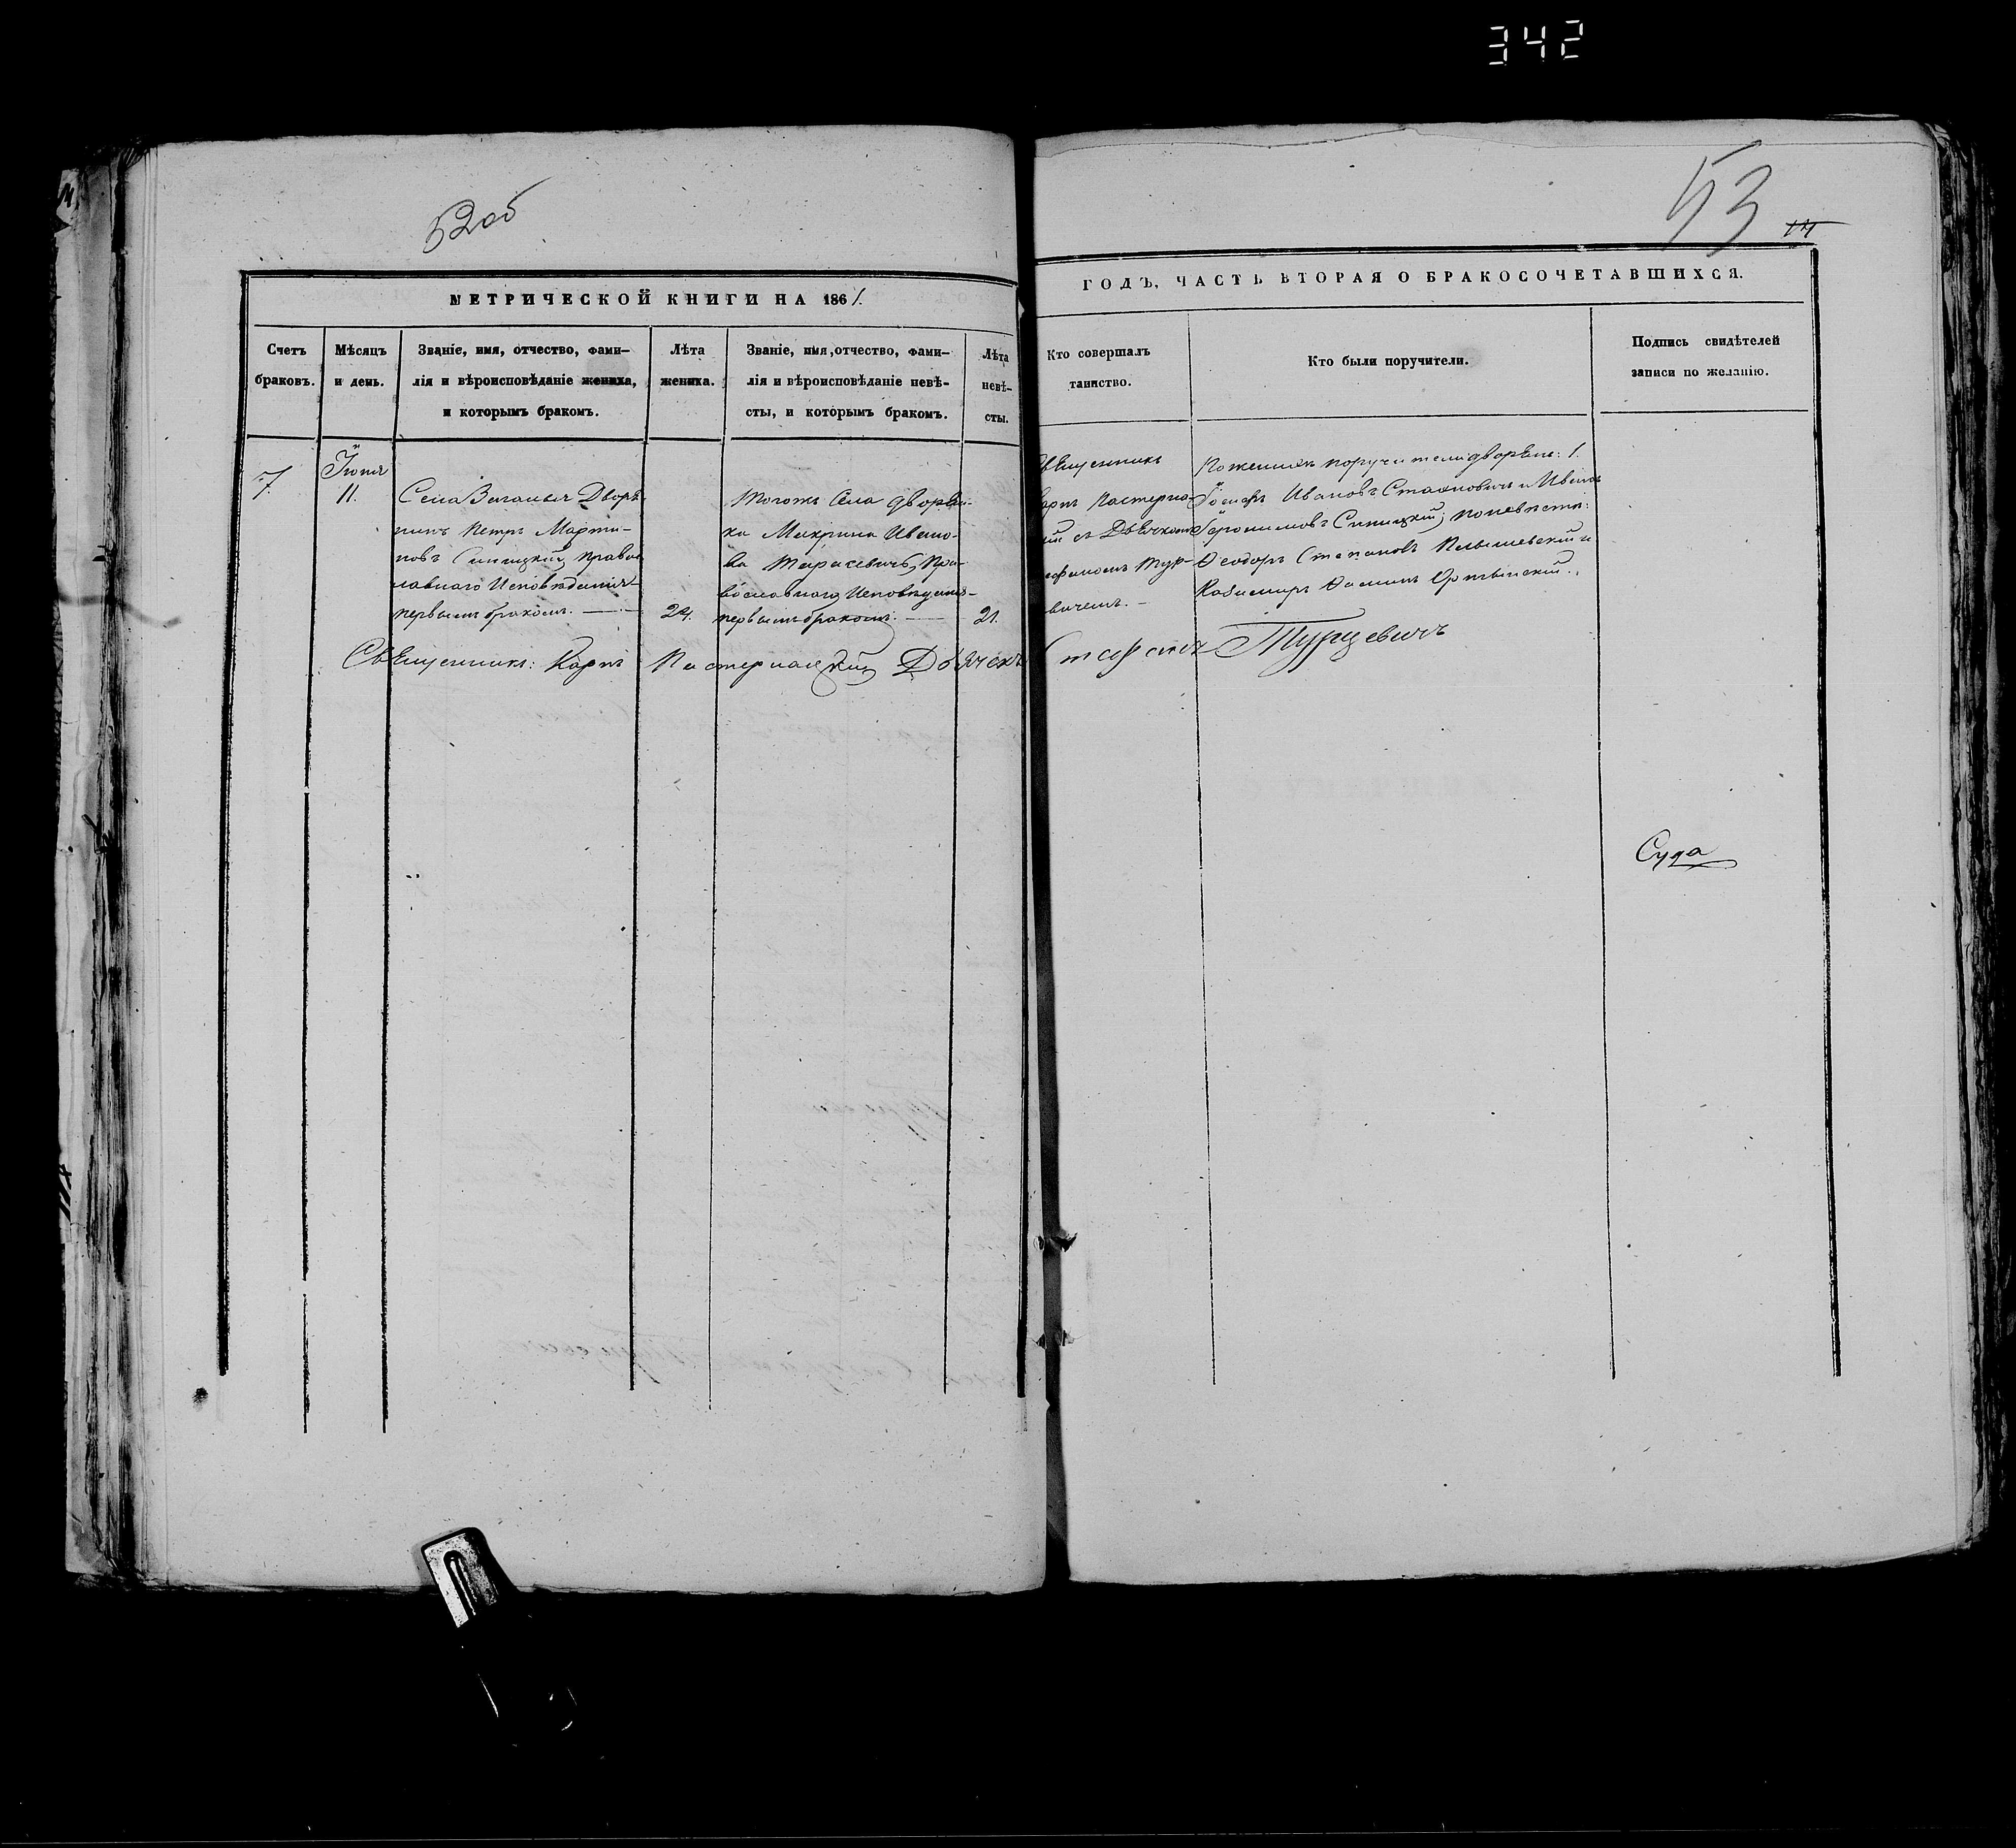 342
52об
53
14
МЕТРИЧЕСКОЙ КНИГИ НА 1861.
ГОДЪ, ЧАСТЬ ВТОРАЯ О БРАКОСОЧЕТАВШИХСЯ.
Счетъ
браковъ.
Мѣсяцъ
и день.
Званіе, имя, отчество, фами-
лія и вѣроисповѣданіе жениха,
и которымъ бракомъ.
Лѣта
жениха.
Званіе, имя, отчество, фами-
лія и вѣроисповѣданіе невѣ-
сты, и которымъ бракомъ.
Лѣта
невѣ-
сты.
Кто совершалъ
таинство.
Кто были поручители.
Подпись свидѣтелей
записи по желанію.
7.
11.
Села Дворя-
нинъ Петръ Марти-
новъ Синицкий, правос
лавнаго Исповѣданія
первымъ бракомъ.
24.
Тогожъ Села дворян-
ка Макрина Ивано-
ва Тарасевичъ, Пра-
вославнаго Исповѣданія
первымъ бракомъ.
21.
вященникъ
арпъ Пастернац
кій съ Дьячкомъ
ефаномъ Тур-
вичемъ.
По женихѣ поручители дворяне: 1.
Іосифъ Ивановъ Стахновичъ и Иванъ
Геронимовъ Синицкий; по невѣстѣ:
Ѳеодоръ Степановъ и
Казимиръ Ѳоминъ
Священникъ: Карпъ Пастернацкий Дьячекъ Стефанъ Турцевичъ
Суда